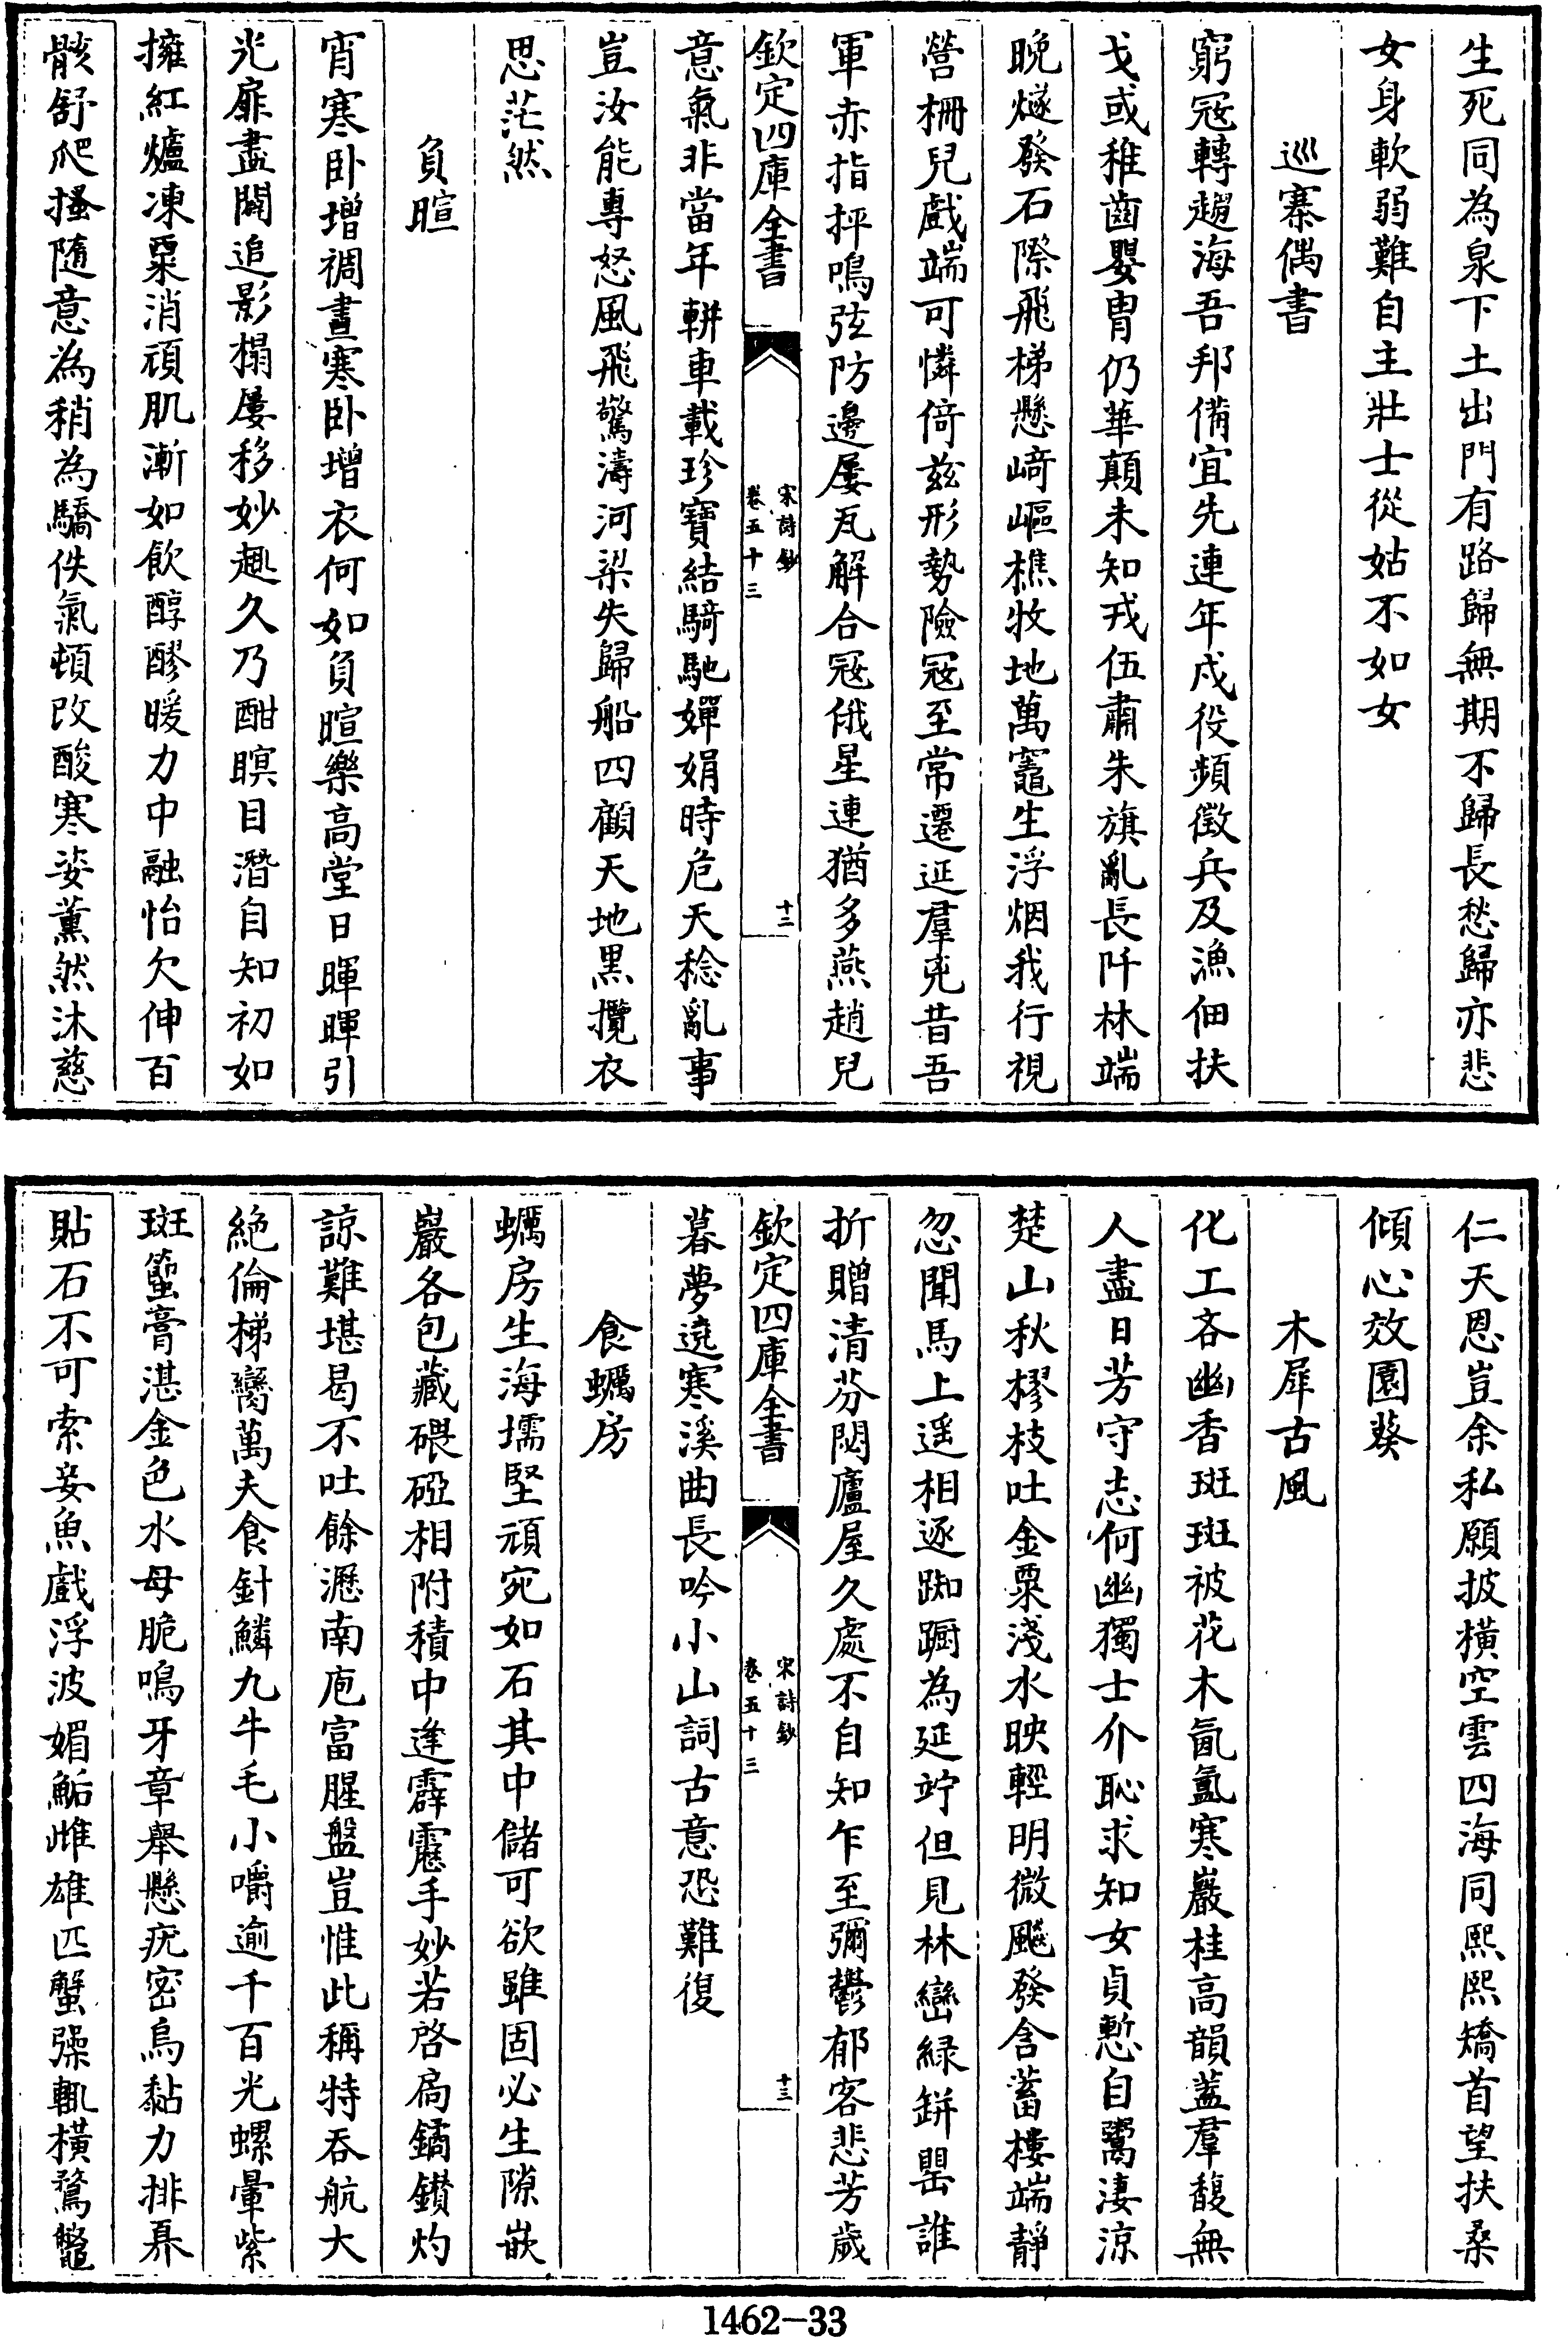 生死同為泉下土出門有路歸無期不歸長愁歸亦悲
女身軟弱難自主壯士從姑不如女
巡寨偶書
窮冦轉趨海吾邦備宜先連年戍役頻徵兵及漁佃扶
戈或稚齒嬰胄仍華顛未知戎伍肅朱旗亂長阡林端
晚燧發石際飛梯懸﨑嶇樵牧地萬竈生浮烟我行視
營柵兒戲端可憐倚兹形勢險冦至常遷延羣兇昔吾
軍赤指抨鳴弦防邊屢瓦解合冦俄星連猶多燕趙兒
欽定四庫全書
宋詩鈔
卷五十三
十二
意氣非當年輧車載珍寶結騎馳嬋娟時危天稔亂事
豈汝能專怒風飛驚濤河梁失歸船四顧天地黑攬衣
思茫然
負暄
宵寒卧增裯晝寒卧增衣何如負暄樂高堂日暉暉引
光扉盡闢追影榻屢移妙趣久乃酣瞑目潛自知初如
擁紅爐凍粟消頑肌漸如飲醇醪暖力中融怡欠伸百
骸舒爬搔隨意為稍為驕佚氣頓改酸寒姿薰然沐慈
仁天恩豈余私願披横空雲四海同熙熙矯首望扶桑
傾心效園葵
木犀古風
化工吝幽香斑斑被花木氤氲寒巖桂高韻葢羣馥無
人盡日芳守志何幽獨士介恥求知女貞慙自鬻淒涼
楚山秋樛枝吐金粟淺水映輕明微飈發含蓄摟端靜
忽聞馬上遥相逐踟蹰為延竚但見林巒緑缾罌誰
折贈清芬閟廬屋久處不自知乍至彌鬱郁客悲芳歲
欽定四庫全書
宋詩鈔
卷五十三
十三
暮夢遶寒溪曲長吟小山詞古意恐難復
食蠣房
蠣房生海壖堅頑宛如石其中儲可欲雖固必生隙嵌
巖各包藏碨磊相附積中逢霹靂手妙若啓扃鐍鑚灼
諒難堪曷不吐餘瀝南庖富腥盤豈惟此稱特吞航大
絶倫梯臠萬夫食針鱗九牛毛小嚼逾千百光螺暈紫
斑蠞膏湛金色水母脆鳴牙章舉懸疣密烏黏力排奡
貼石不可索妾魚戲浮波媚鮜雌雄匹蟹躁輒橫鶩鼈
1462-33